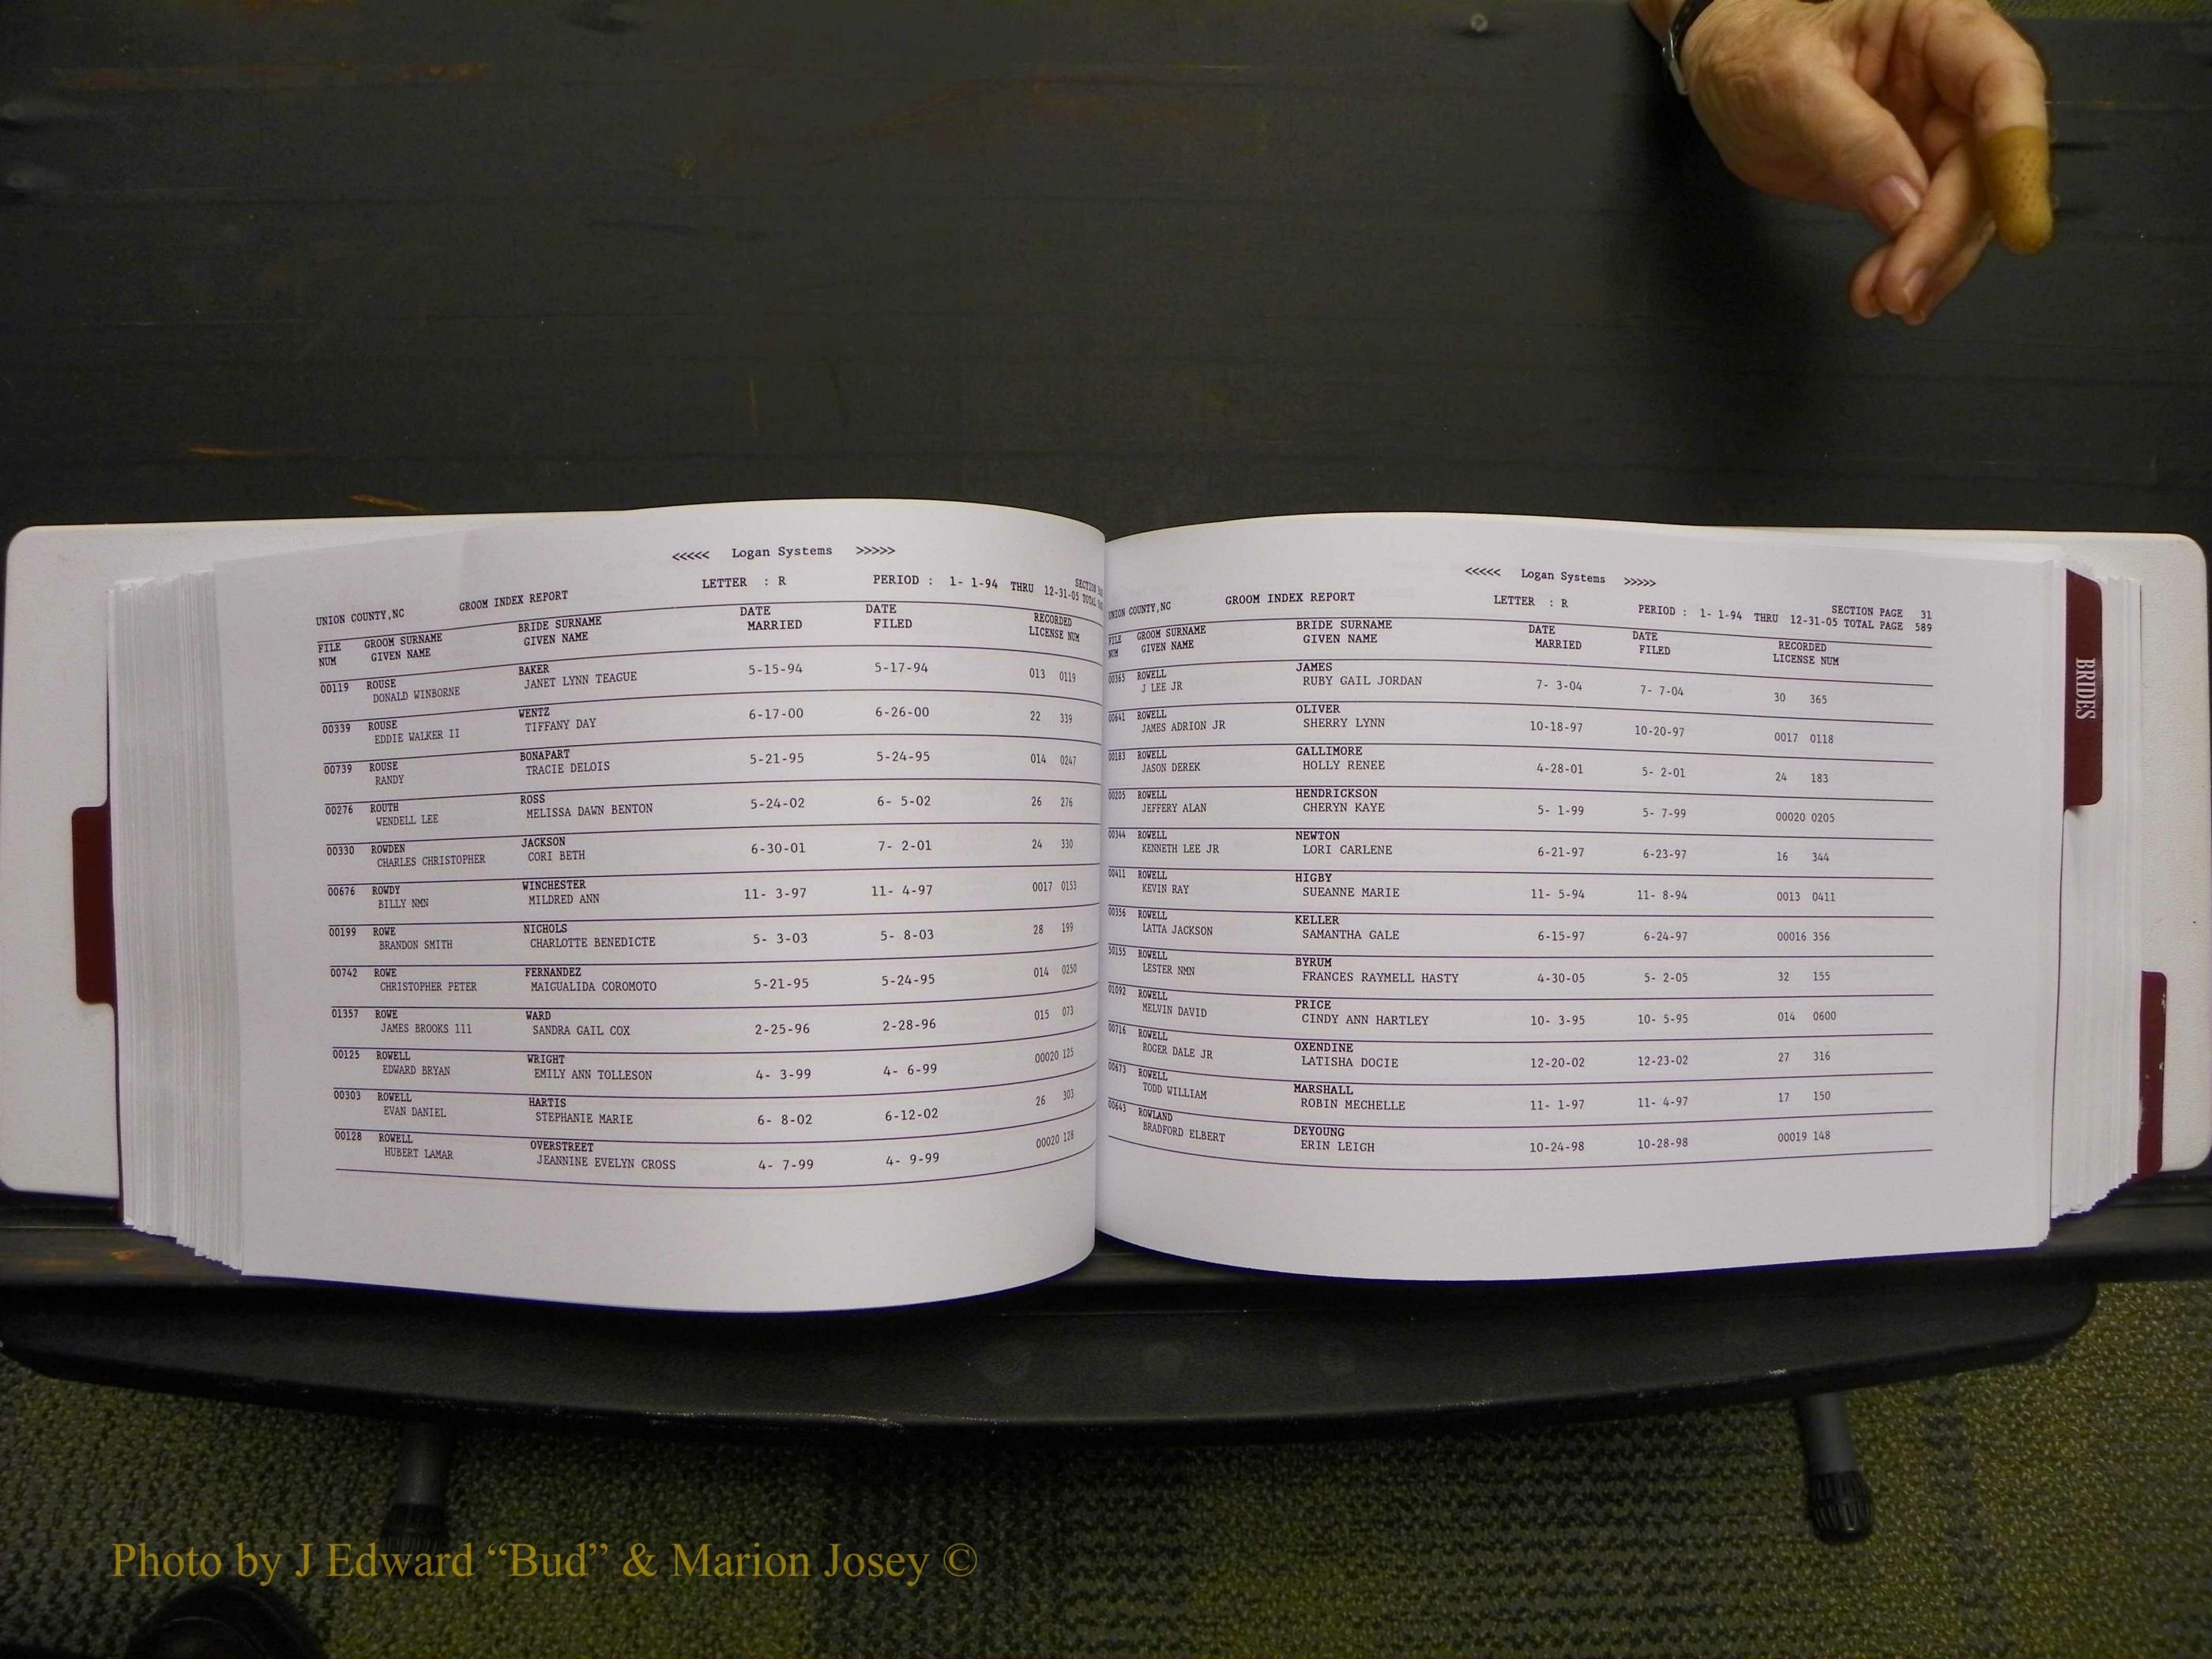 <<<<< Logan Systems >>>>>
UNION COUNTY,NC GROOM INDEX REPORT LETTER : R PERIOD : 1- 1-94 THRU 12-31-05 TOTAL
SECTION
FILE GROOM SURNAME BRIDE SURNAME DATE DATE RECORDED
NUM GIVEN NAME GIVEN NAME MARRIED FILED LICENSE NUM
00119 ROUSE BAKER 5-15-94 5-17-94 013 0119
DONALD WINBORNE JANET LYNN TEAGUE
00339 ROUSE WENTZ 6-17-00 6-26-00 22 339
EDDIE WALKER II TIFFANY DAY
00739 ROUSE BONAPART 5-21-95 5-24-95 014 0247
RANDY TRACIE DELOIS
00276 ROUTH ROSS 5-24-02 6- 5-02 26 276
WENDELL LEE MELISSA DAWN BENTON
00330 ROWDEN JACKSON 6-30-01 7- 2-01 24 330
CHARLES CHRISTOPHER CORI BETH
00676 ROWDY WINCHESTER 11- 3-97 11- 4-97 0017 0153
BILLY NMN MILDRED ANN
00199 ROWE NICHOLS 5- 3-03 5- 8-03 28 199
BRANDON SMITH CHARLOTTE BENEDICTE
00742 ROWE FERNANDEZ 5-21-95 5-24-95 014 0250
CHRISTOPHER PETER MAIGUALIDA COROMOTO
01357 ROWE WARD 2-25-96 2-28-96 015 073
JAMES BROOKS 111 SANDRA GAIL COX
00125 ROWELL WRIGHT 4- 3-99 4- 6-99 00020 125
EDWARD BRYAN EMILY ANN TOLLESON
00303 ROWELL HARTIS 6- 8-02 6-12-02 26 303
EVAN DANIEL STEPHANIE MARIE
00128 ROWELL OVERSTREET 4- 7-99 4- 9-99 00020 128
HUBERT LAMAR JEANNINE EVELYN CROSS
<<<<< Logan Systems >>>>>
UNION COUNTY,NC GROOM INDEX REPORT LETTER : R SECTION PAGE 31
PERIOD : 1- 1-94 THRU 12-31-05 TOTAL PAGE 589
FILE GROOM SURNAME BRIDE SURNAME DATE DATE RECORDED
NUM GIVEN NAME GIVEN NAME MARRIED FILED LICENSE NUM
00365 ROWELL JAMES 7- 3-04 7- 7-04 30 365
J LEE JR RUBY GAIL JORDAN
00641 ROWELL OLIVER 10-18-97 10-20-97 0017 0118
JAMES ADRION JR SHERRY LYNN
00183 ROWELL GALLIMORE 4-28-01 5- 2-01 24 183
JASON DEREK HOLLY RENEE
00205 ROWELL HENDRICKSON 5- 1-99 5- 7-99 00020 0205
JEFFERY ALAN CHERYN KAYE
00344 ROWELL NEWTON 6-21-97 6-23-97 16 344
KENNETH LEE JR LORI CARLENE
00411 ROWELL HIGBY 11- 5-94 11- 8-94 0013 0411
KEVIN RAY SUEANNE MARIE
00356 ROWELL KELLER 6-15-97 6-24-97 00016 356
LATTA JACKSON SAMANTHA GALE
50155 ROWELL BYRUM 4-30-05 5- 2-05 32 155
LESTER NMN FRANCES RAYMELL HASTY
01092 ROWELL PRICE 10- 3-95 10- 5-95 014 0600
MELVIN DAVID CINDY ANN HARTLEY
00716 ROWELL OXENDINE 12-20-02 12-23-02 27 316
ROGER DALE JR LATISHA DOCIE
00673 ROWELL MARSHALL 11- 1-97 11- 4-97 17 150
TODD WILLIAM ROBIN MECHELLE
00643 ROWLAND DEYOUNG 10-24-98 10-28-98 00019 148
BRADFORD ELBERT ERIN LEIGH
BRIDES
Photo by J Edward “Bud” & Marion Josey ©